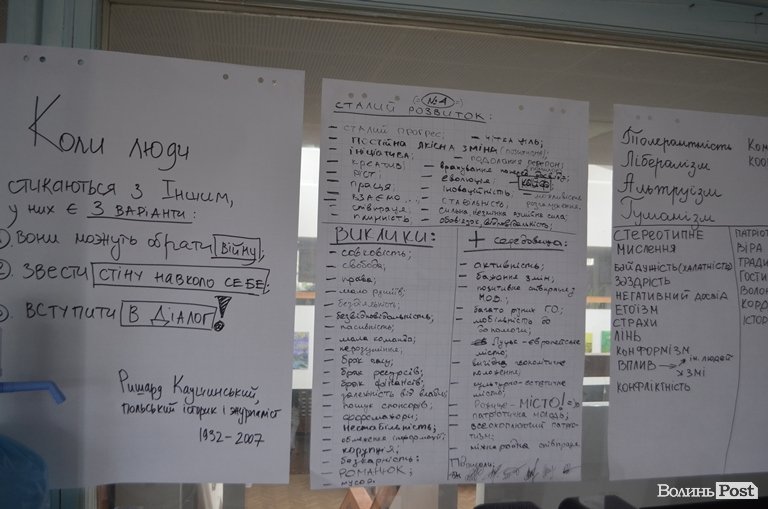 Коли люди
стикаються з Іншим,
у них є 3 варіанти:
Вони можуть обрати війну;
2. звести стіну навколо себе;
вступити в діалог!
Ришард Капушинський,
польський історик і журналіст
1932-2007
№4
СТАЛИЙ РОЗВИТОК:
— СТАЛИЙ ПРОГРЕС;
— ПОСТІЙНА ЯКІСНА ЗМІНА
— ІНІЦІАТИВА
— КРЕАТИВ
— РІСТ
— ПРАЦЯ
— ВЗАЄМО...
— СПІВПРАЦЯ
— чітка ціль;
— подолання перепон;
— врахування
— еволюція
— інноваційність
— стабільність;
— сильна, незмінна
— обов'язок, відповідальність;
ВИКЛИКИ:
— совковість;
— свобода;
— права;
— мало рушіїв;
— бездіяльність;
— безвідповідальність;
— пасивність;
— мала команда;
— нерозуміння;
— брак часу;
— брак ресурсів;
— брак фінансів;
— залежність від влади;
— пошук спонсорів;
— форсмажори;
— Нестабільність;
— обмеження інформації;
— корупція;
— безкарність;
— РОМАНЮК;
— мусор.
+ середовища:
— активність;
— бажання змін;
— позитивна співпраця з
МОВ;
— багато різних ГО;
— мобільність до
допомоги;
— Луцьк - європейське
місто;
— вигідне економічне
положення;
— культурно-естетичне
місто;
МІСТО!
— патріотична молодь;
— всеохоплюючий патріо-
тизм;
— міжнародна співпраця
Толерантність
Лібералізм
Альтруїзм
Гуманізм
СТЕРЕОТИПНЕ
МИСЛЕННЯ
БАЙДУЖІСТЬ (ХАЛАТНІСТЬ)
ЗАЗДРІСТЬ
НЕГАТИВНИЙ ДОСВІД
ЕГОЇЗМ
СТРАХИ
ЛІНЬ
КОНФОРМІЗМ
ВПЛИВ → ін. людей
ЗМІ
КОНФЛІКТНІСТЬ
ПАТРІОТ
ВІРА
ТРАДИ
ГОСТИ
ВОЛОН
КОРД
ІСТОР
ВолиньPost